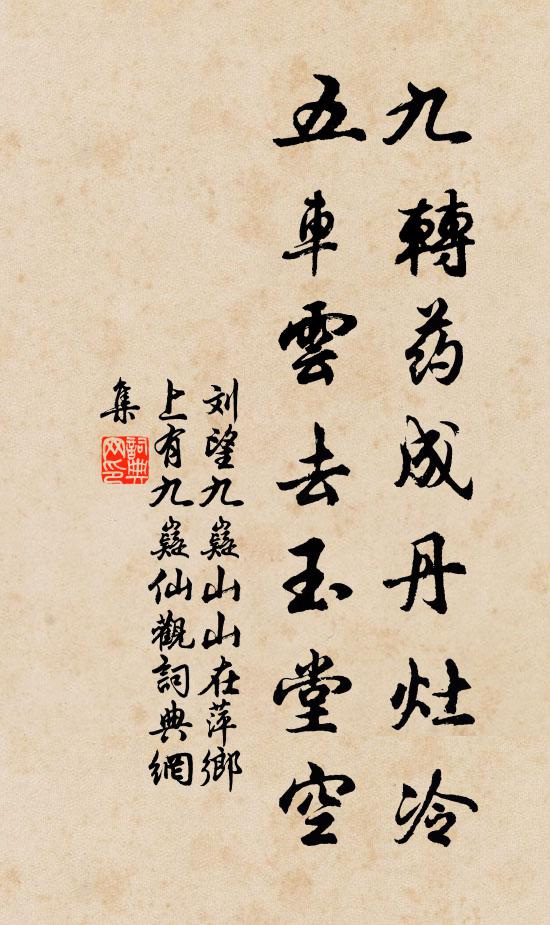 九轉药成丹灶冷
五車雲去玉堂空
刘望九嶷山山在萍鄉
上有九嶷仙觀詞典網
集
詞典
网印